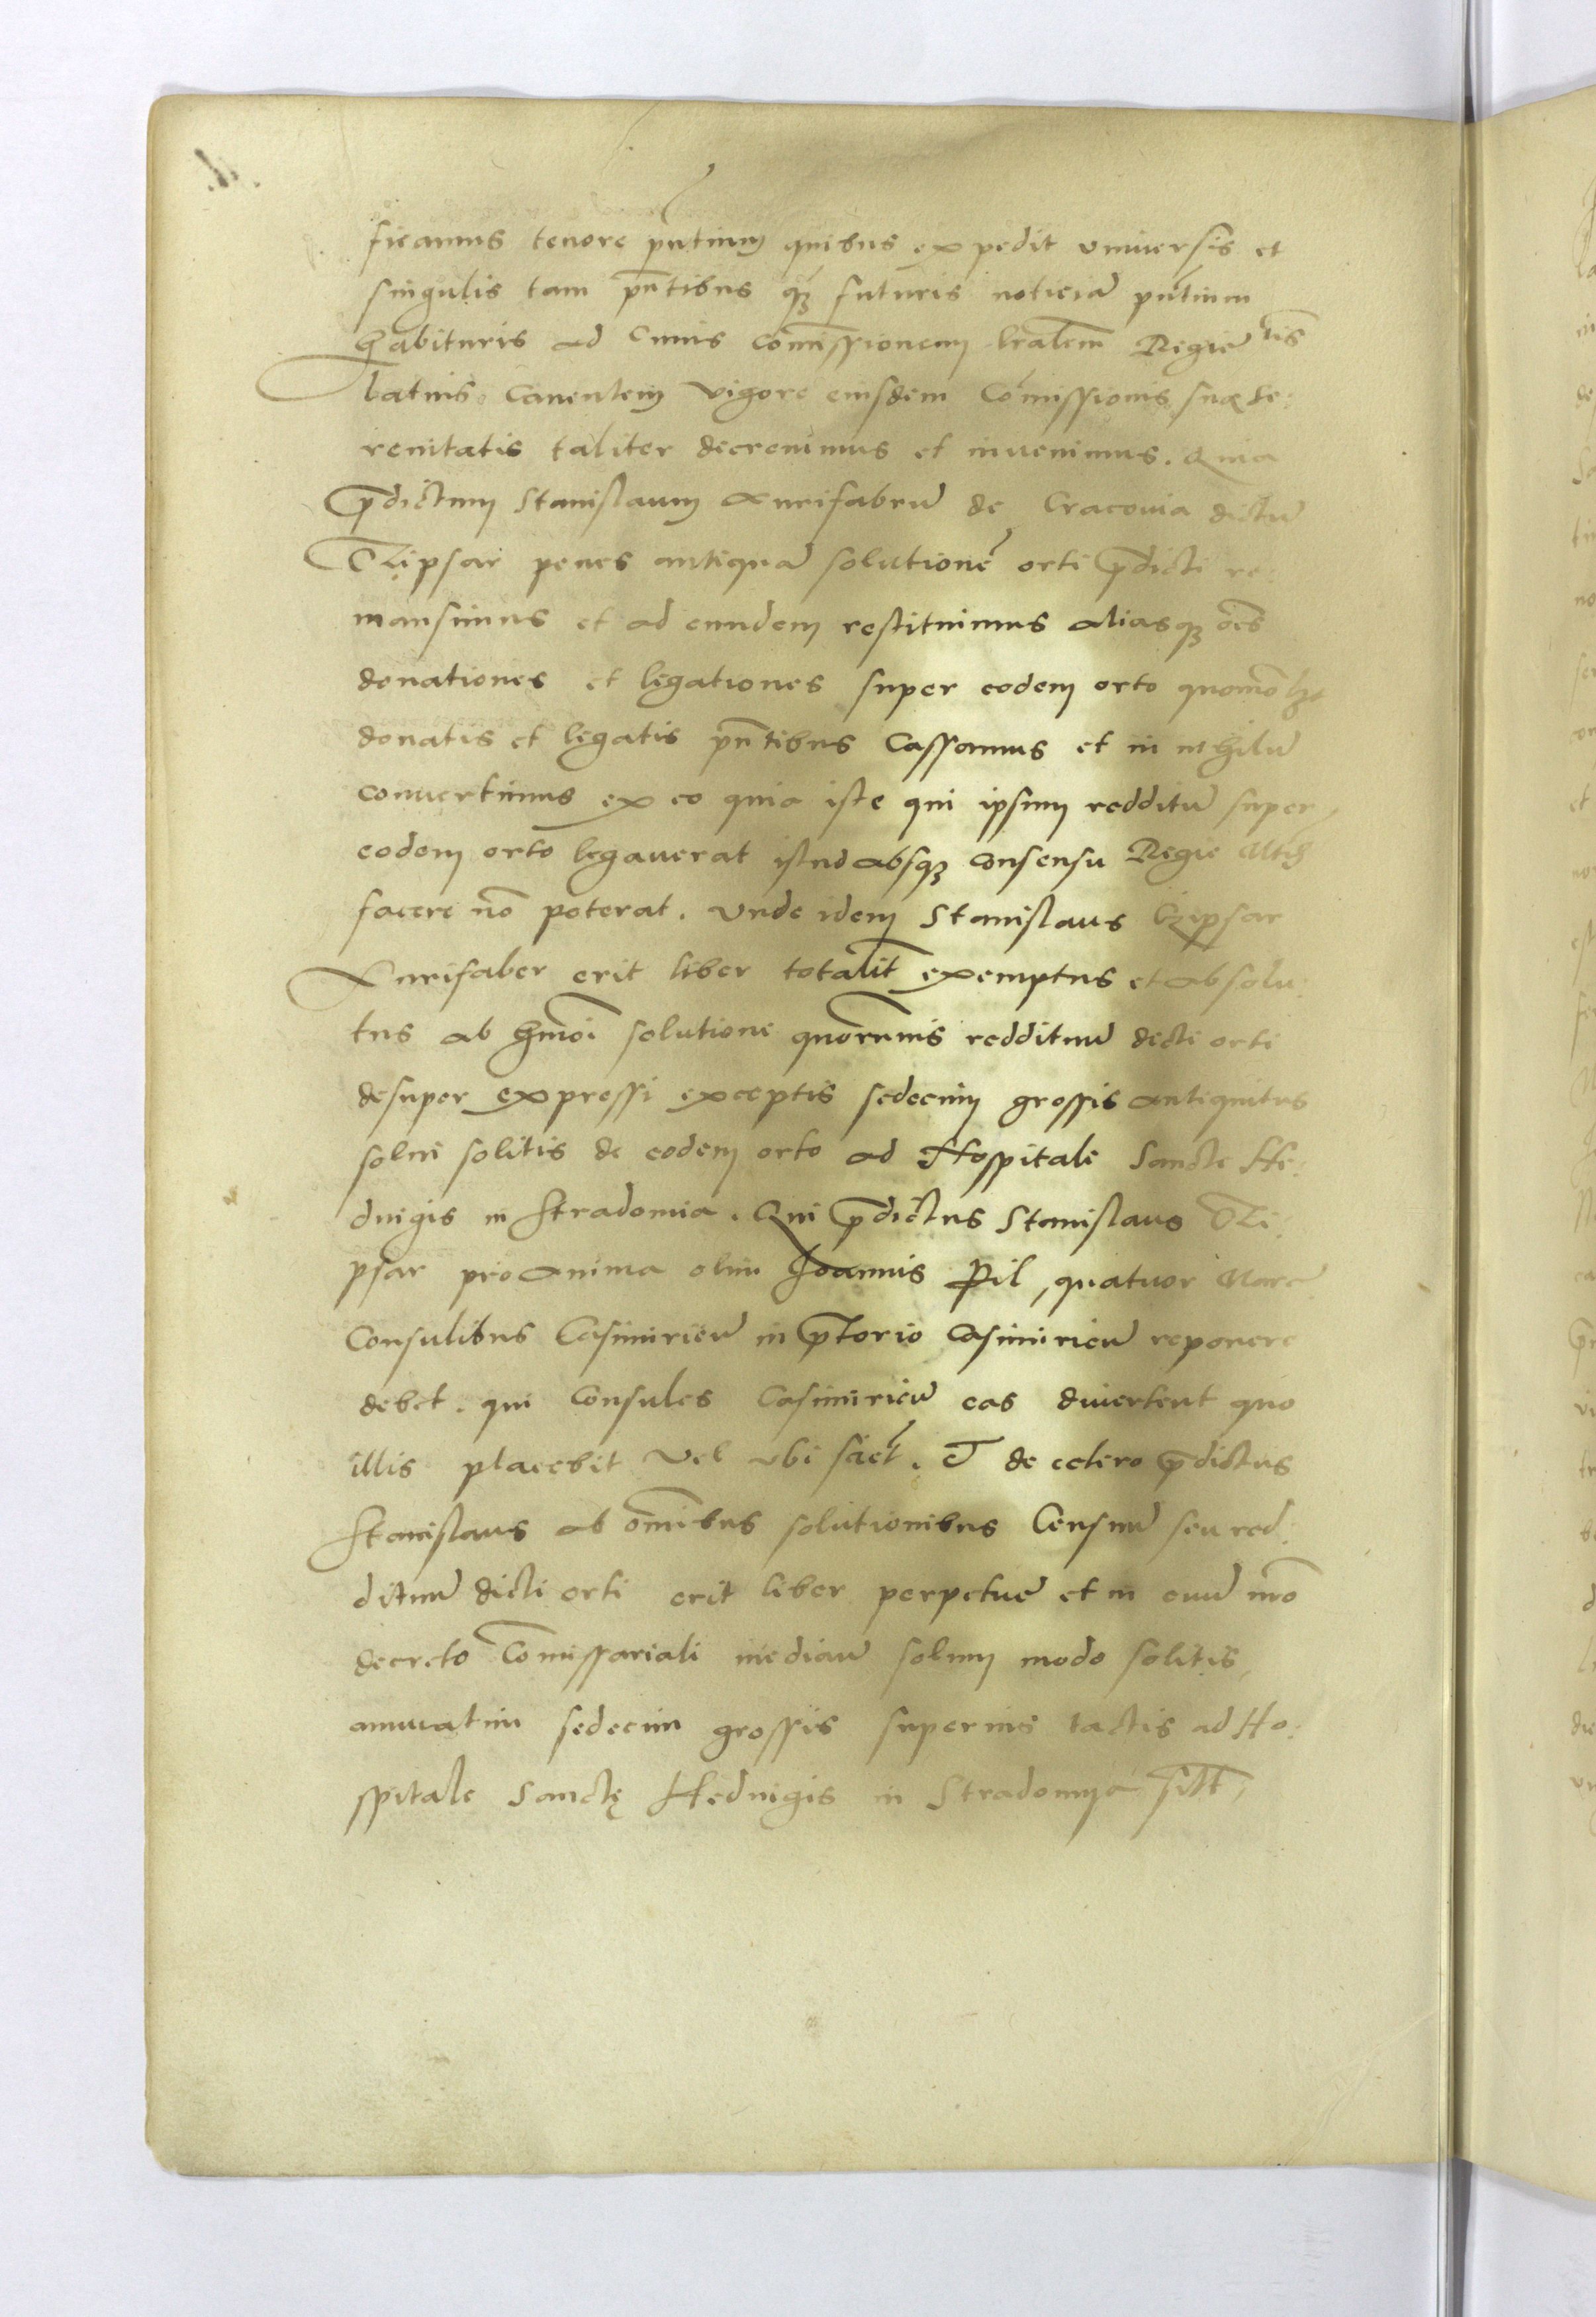 ficamus tenore pñtium quibus expedit vniuersis et
singulis tam pñtibus q̃ꝫ futuris noticiã pñtium
habituris ad cuius com̃issionem lr̃alem Regie
latius cauentem vigore eiusdem Com̃issionis suæ Se:
renitatis taliter decreuimus et inuenimus. Quia
p̃dictum Stanislaum Aurifabrũ de Cracouia dictũ
penes antiquã solutionẽ orti p̃dicti re:
mansimus et ad eundem restituimus aliasqꝫ oẽs
donationes et legationes super eodem orto
donatis et legatis pñtibus Cassamus et in nihilũ
conuertimus ex eo quia iste qui ipsum redditũ super
eodem orto legauerat istud absqꝫ consensu Regie Mtis
facere nõ poterat. Vnde idem Stanislaus Czipsar
Aurifaber erit liber totalit̃ exemptus et absolu:
tus ab hm̃oi solutione quorumuis reddituũ dicti orti
desuper expressi exceptis sedecim grossis antiquitus
solui solitis de eodem orto ad Hospitale Sancte He:
duigis in Stradomia. Qui p̃dictus Stanislaus
psar pro anima olim Joannis Pil, quatuor Marc̃
Consulibus Casimirieñ in p̃torio Casimirieñ reponere
debet. qui Consules Casimirieñ eas diuertent quo
illis placebit vel vbi sciet̃. Et de cetero p̃dictus
Stanislaus ab om̃ibus solutionibus Censuũ seu red:
dituũ dicti orti erit liber perpetue et in euũ nrõ
decreto Com̃issariali mediañ solum modo solitis
annuatim sedecim grossis superius tactis ad Ho:
spitale Sanctę Heduigis in Stradomia